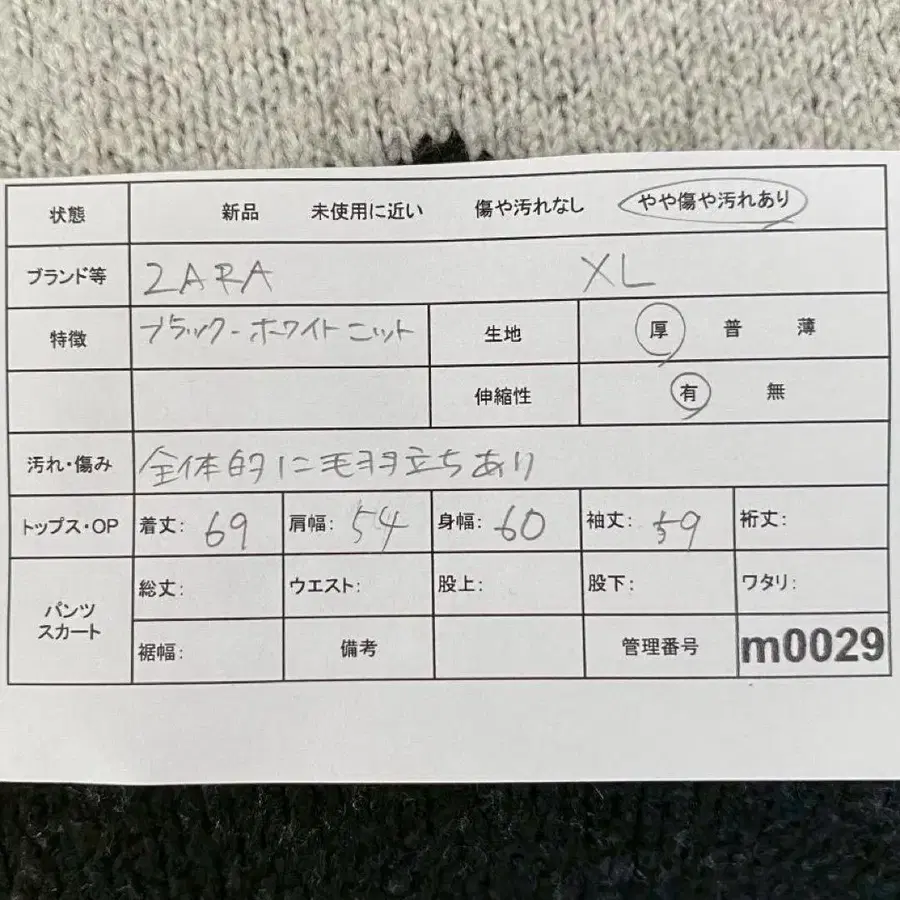 状態 新品 未使用に近い 傷や汚れなし やや傷や汚れあり
ブランド等 ZARA XL
特徴 ブラック-ホワイト ニット 生地 厚 普 薄
伸縮性 有 無
汚れ・傷み 全体的に毛羽立ちあり
トップス・OP 着丈: 69 肩幅: 54 身幅: 60 袖丈: 59 裄丈:
パンツ スカート 総丈: ウエスト: 股上: 股下: ワタリ:
裾幅: 備考 管理番号 m0029